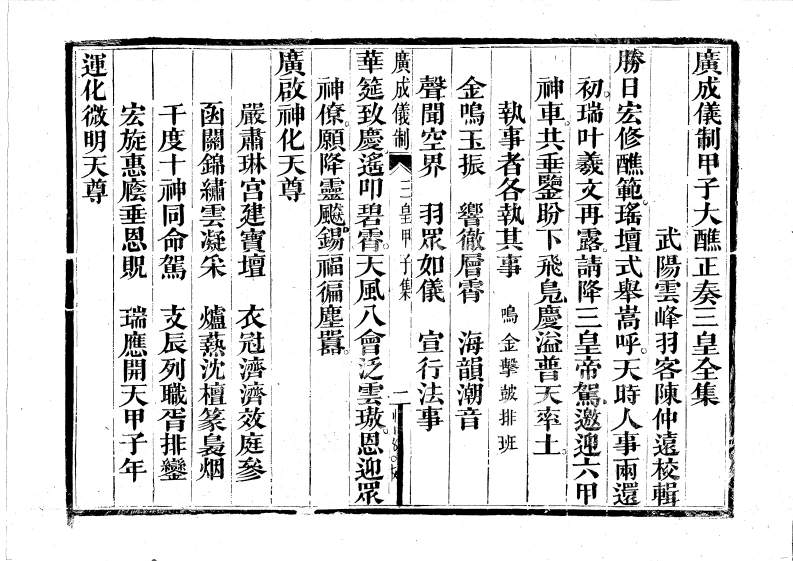 廣成儀制甲子大醮正奏三皇全集
武陽雲峰羽客陳仲遠校輯
勝日宏修醮範。瑤壇式舉嵩呼。天時人事兩還
初。瑞叶羲文再露。請降三皇帝駕。邀迎六甲
神車。共垂鑒盼下飛鳧。慶溢普天率土。
執事者各執其事 鳴金擊皷排班
金鳴玉振 響徹層霄 海韻潮音
聲聞空界 羽眾如儀 宣行法事
廣成儀制 三皇甲子集 二
華筵致慶。遙叩碧霄。天風八會泛雲璈。恩迎眾
神僚。願降靈飈。錫福徧塵囂。
廣啟神化天尊
嚴肅琳宮建寶壇 衣冠濟濟效庭參
函關錦繡雲凝采 爐爇沈檀篆裊烟
千度十神同命駕 支辰列職胥排鑾
宏旋惠廕垂恩貺 瑞應開天甲子年
運化微明天尊